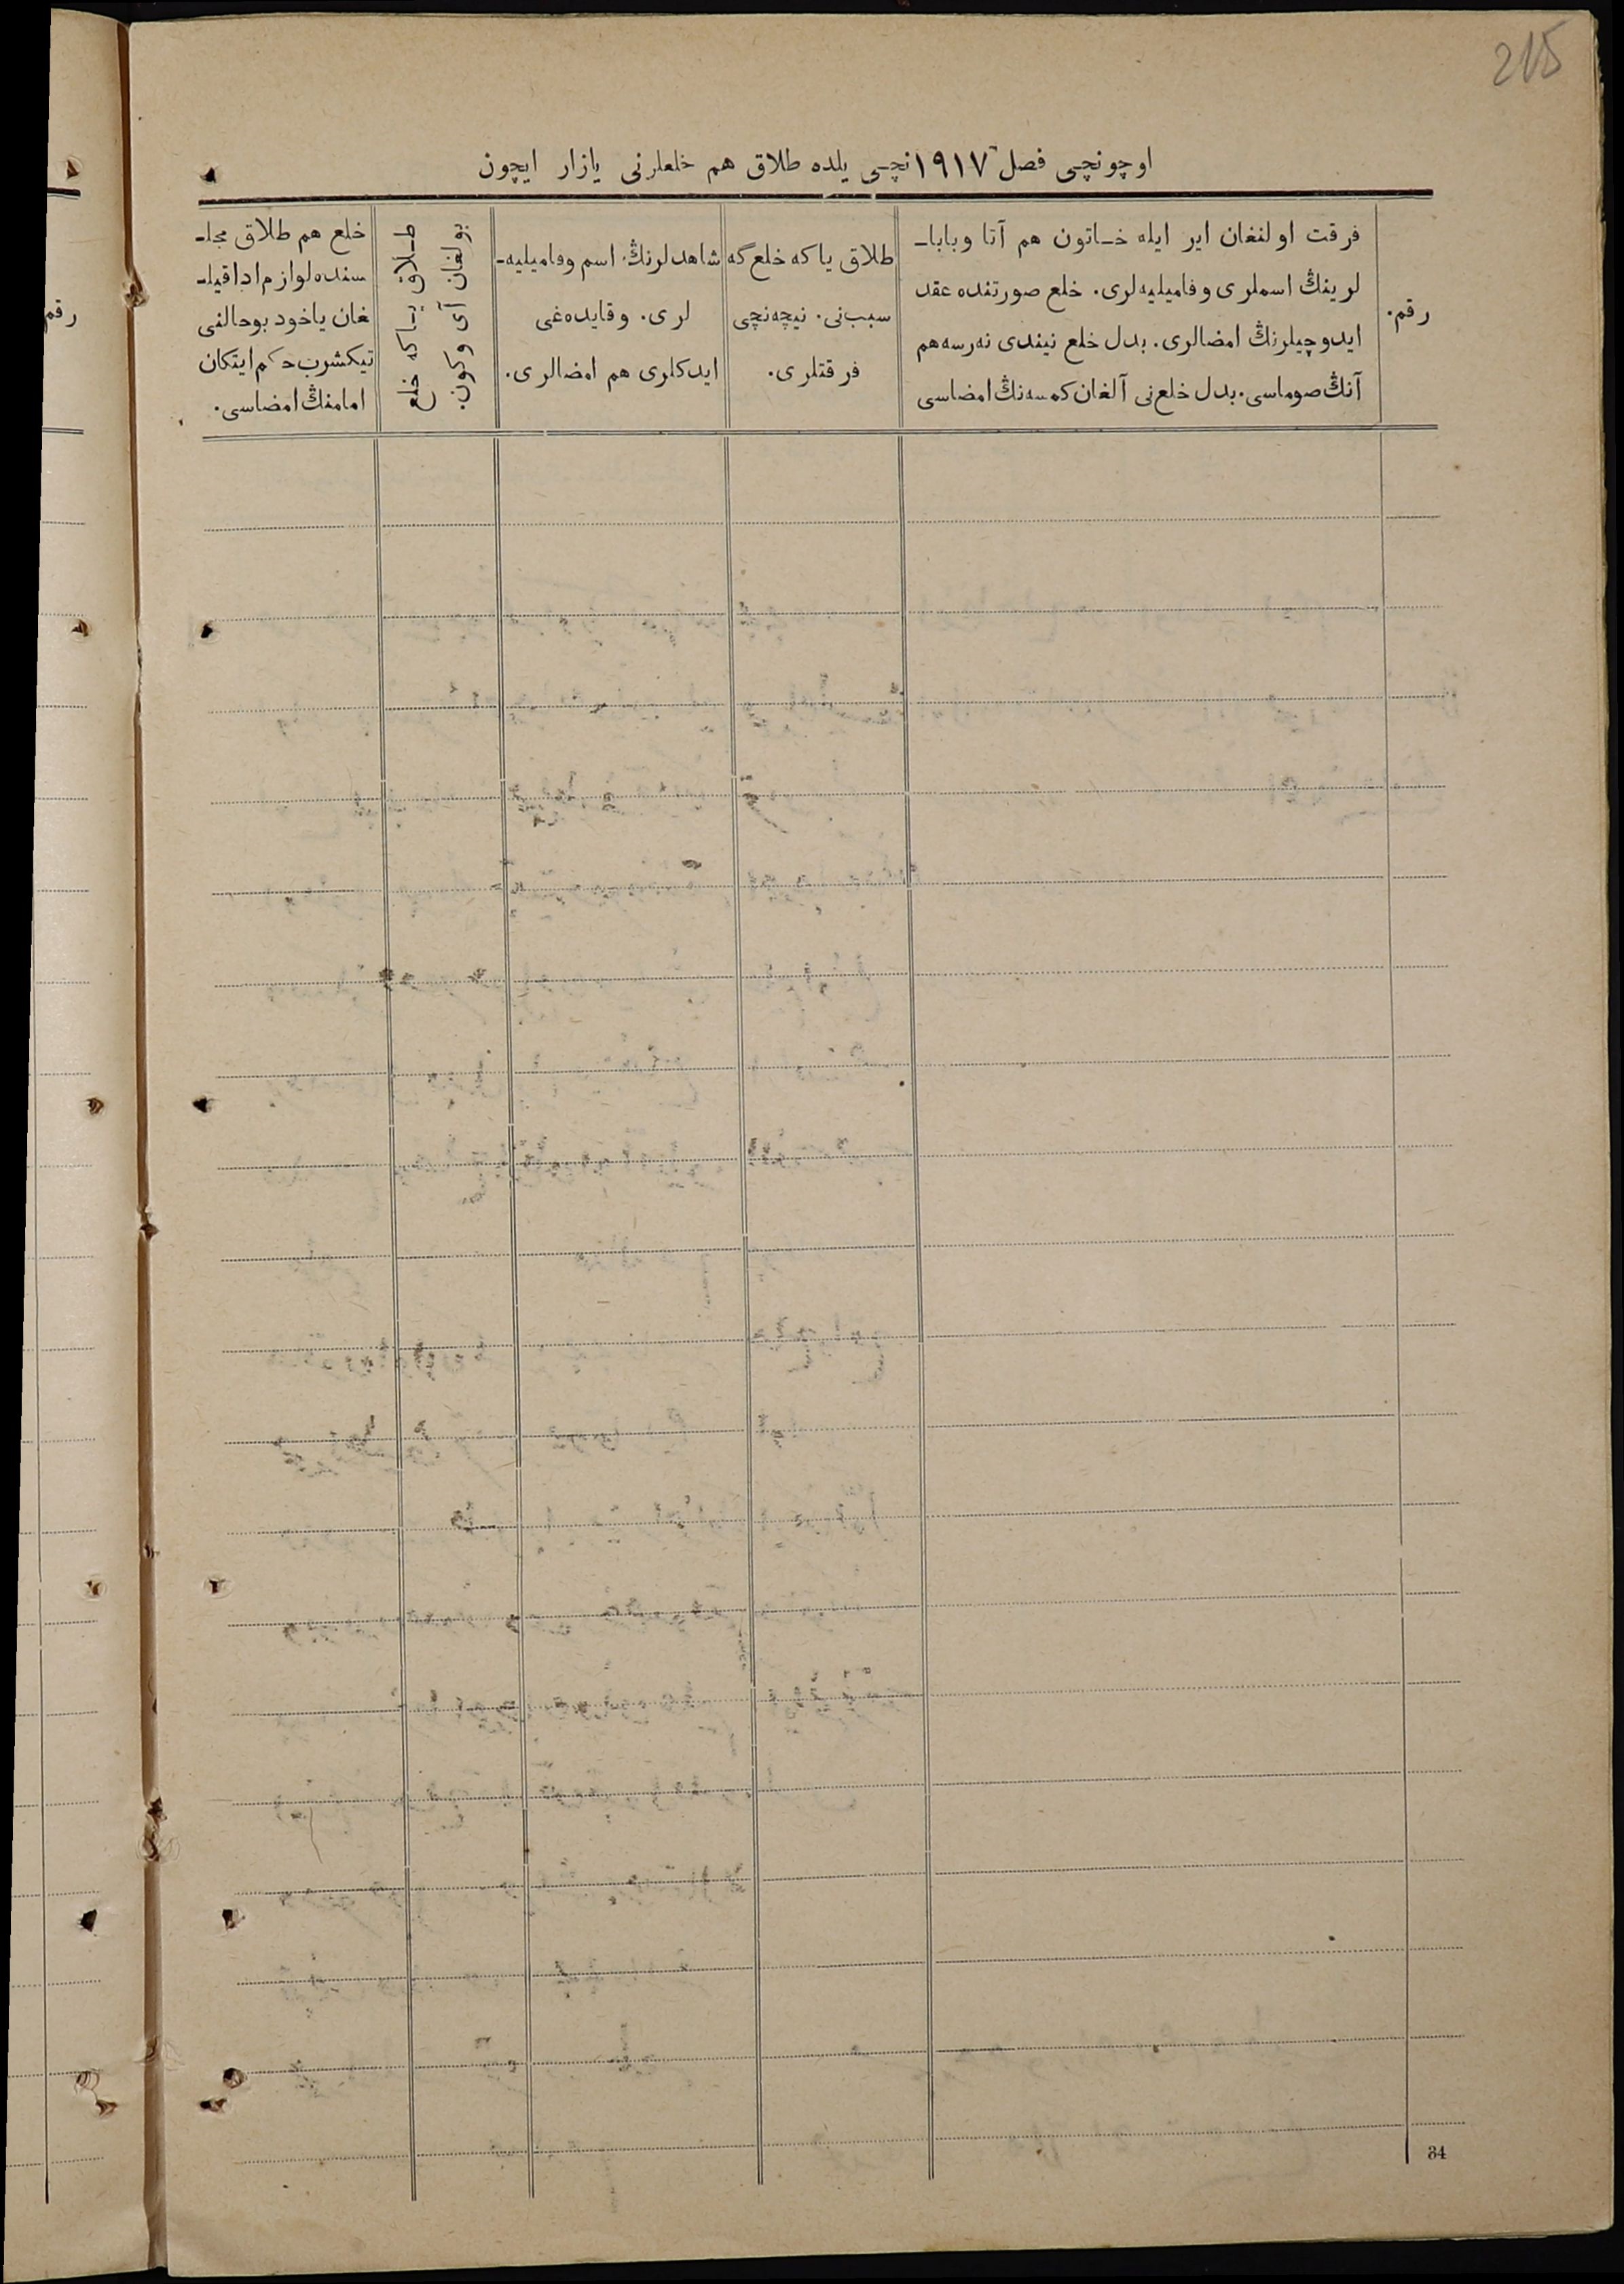 215
اوچونچی فصل ١٩١٧ نچی یلده طلاق هم خلعلرنی یازار ایچون
رقم.
فرقت اولنغان ایر ایله خـاتون هم آتا وباباـ
لرینڭ اسملری وفامیلیه‌لری. خلع صورتنده عقد
ایدوچیلرنڭ امضالری. بدل خلع نیندی نه‌رسه هم
آنڭ صوماسی. بدل خلع نی آلغان کمسه‌نڭ امضاسی
طلاق یاکه خلع گه
سبب نی. نیچه‌نچی
فرقتلری.
شاهدلرنڭ اسم وفامیلیه‌ـ
لری. وقایده‌غی
ایدکلری هم امضالری.
طـلاق یـاکه خلع
بولغان آی وکون.
خلع هم طلاق مجلـ
سنده لوازم ادا قیلـ
غان یاخود بوحالنی
تیکشرب حکم ایتکان
امامنڭ امضاسی.
رقم
34